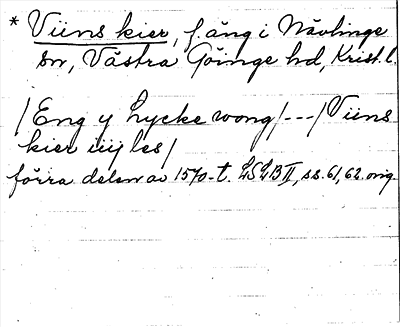 * Viins kier, f. äng i Nävlinge
sn, Västra Göinge hd, Krist. l.
/Eng y Lycke wong/---/Viins
kier iiij les/
förra delen av 1570-t. LSLB II, ss. 61, 62. orig.